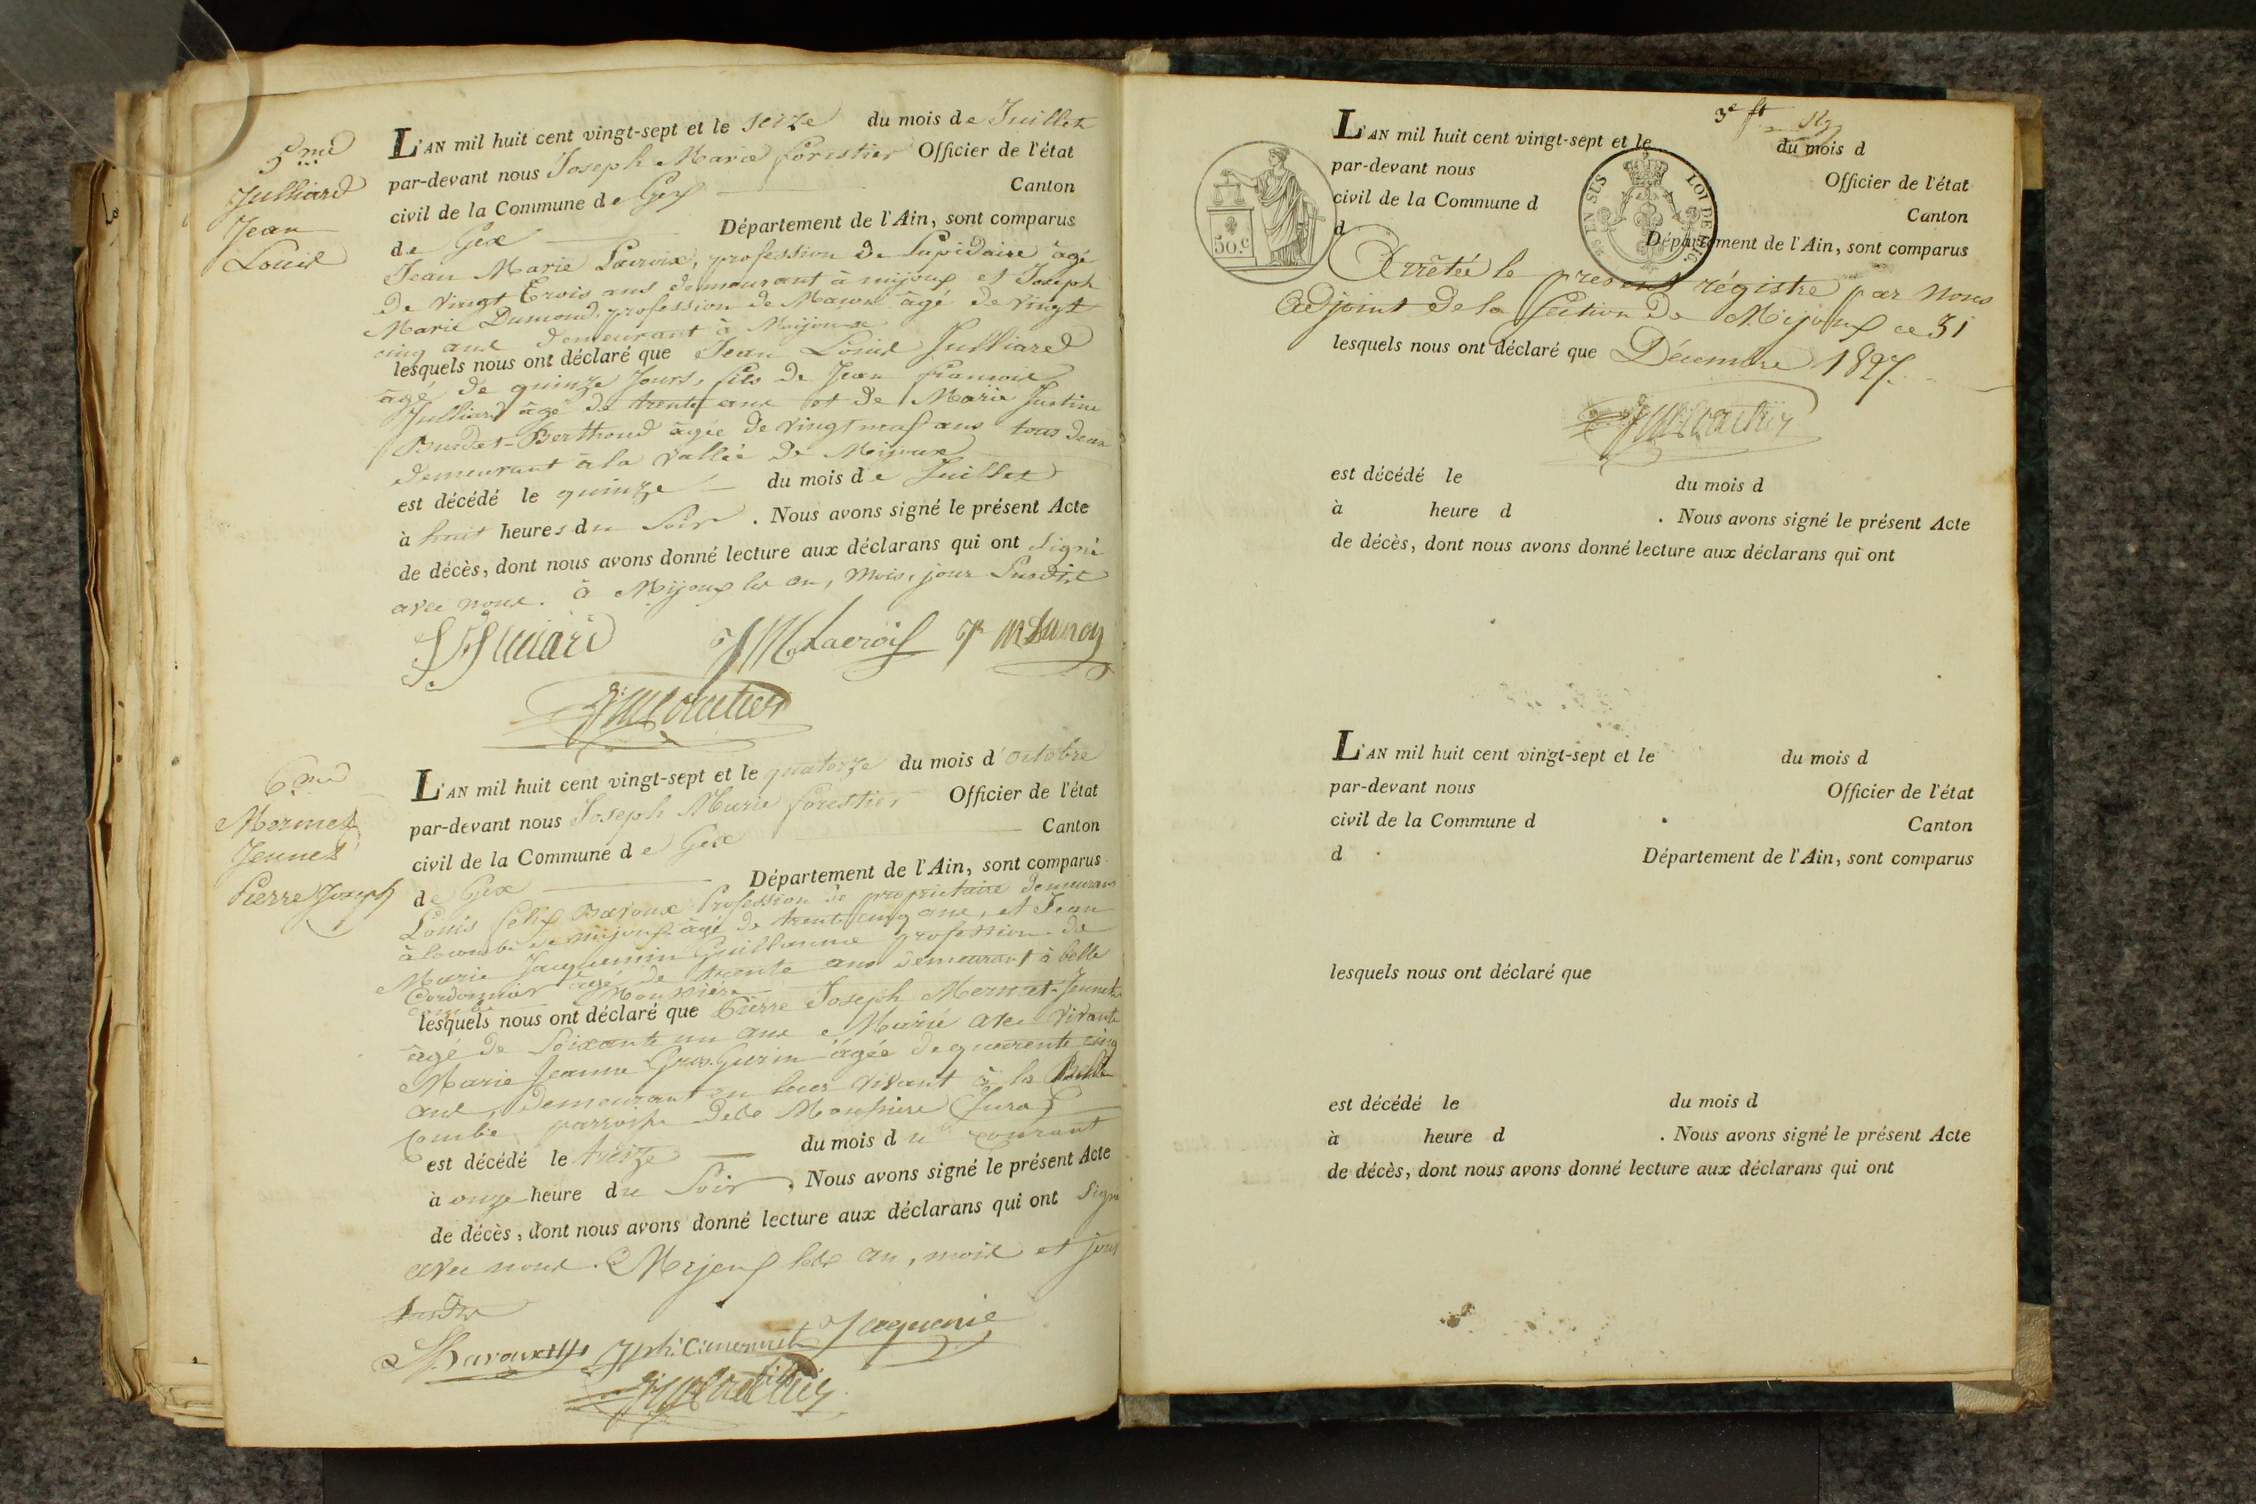 5me
Julliard
Jean
Louis
L'AN mil huit cent vingt-sept et le seize du mois de Juillet
par-devant nous Joseph Marie forestier Officier de l'état
civil de la Commune de Gex Canton
de Gex Département de l'Ain, sont comparus
Jean Marie Lacroix, profession de Lapidaire âgé
de vingt trois ans demeurant à mijoux et Joseph
Marie Dumond, profession de Macon âgé de vingt
cinq ans demeurant à Mijoux
lesquels nous ont déclaré que Jean Louis Julliard
âgé de quinze Jours, fils de Jean francois
Julliard âgé de trente ans et de Marie Justine
Berthoud âgée de vingt neuf ans tous deux
demeurant à la vallée de Mijoux
est décédé le quinze du mois de Juillet
à huit heures du Soir. Nous avons signé le présent Acte
de décès, dont nous avons donné lecture aux déclarans qui ont signé
avec nous. à Mijoux les an, mois, jour Susdit
JMLacroix
6me
Mermet
Jennet
Pierre Joseph
L'AN mil huit cent vingt-sept et le quatorze du mois d'octobre
par-devant nous Joseph Marie forestier Officier de l'état
civil de la Commune de Gex Canton
de Gex Département de l'Ain, sont comparus
Louis felix Baroux Profession de propriétaire demeurant
à la combe de mijoux âgé de trente cinq ans, et Jean
Marie Jacquemin Guillaume profession de
Cordonnier agé de trente ans demeurant à belle
combe
lesquels nous ont déclaré que Pierre Joseph Mermet-Jennet
âgé de Soixante un ans Marié avec vivante
Marie Jeanne Gros-Gurin âgée de quarente cinq
ans, demeurant vivant à la Belle
Combe parroisse (Jura)
est décédé le treize du mois du courant
à onze heure du Soir. Nous avons signé le présent Acte
de décès, dont nous avons donné lecture aux déclarans qui ont signé
avec nous. Mijoux les an, mois et jour
susdits
L'AN mil huit cent vingt-sept et le du mois d
par-devant nous Officier de l'état
civil de la Commune d Canton
d Département de l'Ain, sont comparus
50.c
EN SUS
LOI DE
Arrêtée le present régistre par nous
adjoint de la Section de Mijoux ce 31
lesquels nous ont déclaré que Décembre 1827.
est décédé le du mois d
à heure d . Nous avons signé le présent Acte
de décès, dont nous avons donné lecture aux déclarans qui ont
L'AN mil huit cent vingt-sept et le du mois d
par-devant nous Officier de l'état
civil de la Commune d Canton
d Département de l'Ain, sont comparus
lesquels nous ont déclaré que
est décédé le du mois d
à heure d . Nous avons signé le présent Acte
de décès, dont nous avons donné lecture aux déclarans qui ont